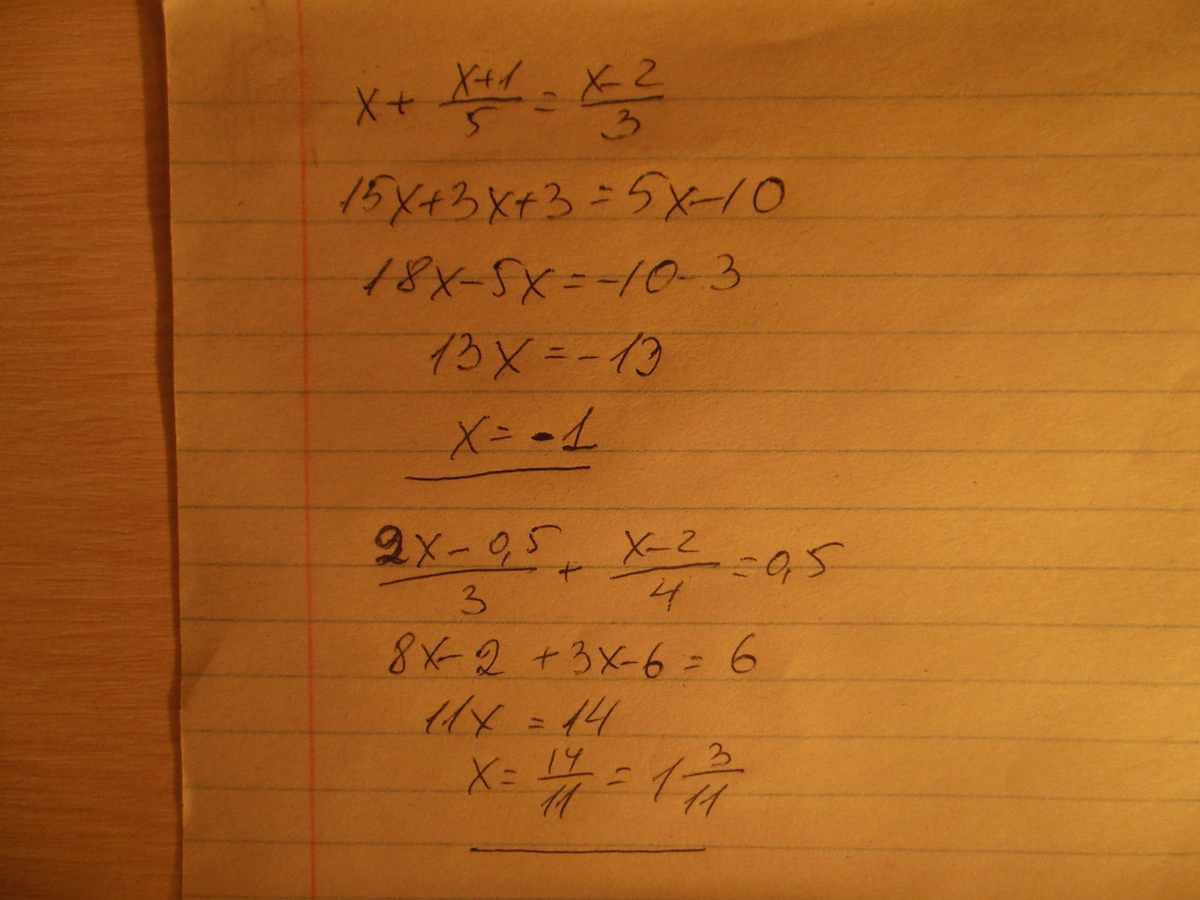 x + (x+1)/5 = (x-2)/3
15x+3x+3=5x-10
18x-5x=-10-3
13x=-13
x=-1
(2x-0,5)/3 + (x-2)/4 = 0,5
8x-2+3x-6=6
11x=14
x=14/11=1 3/11